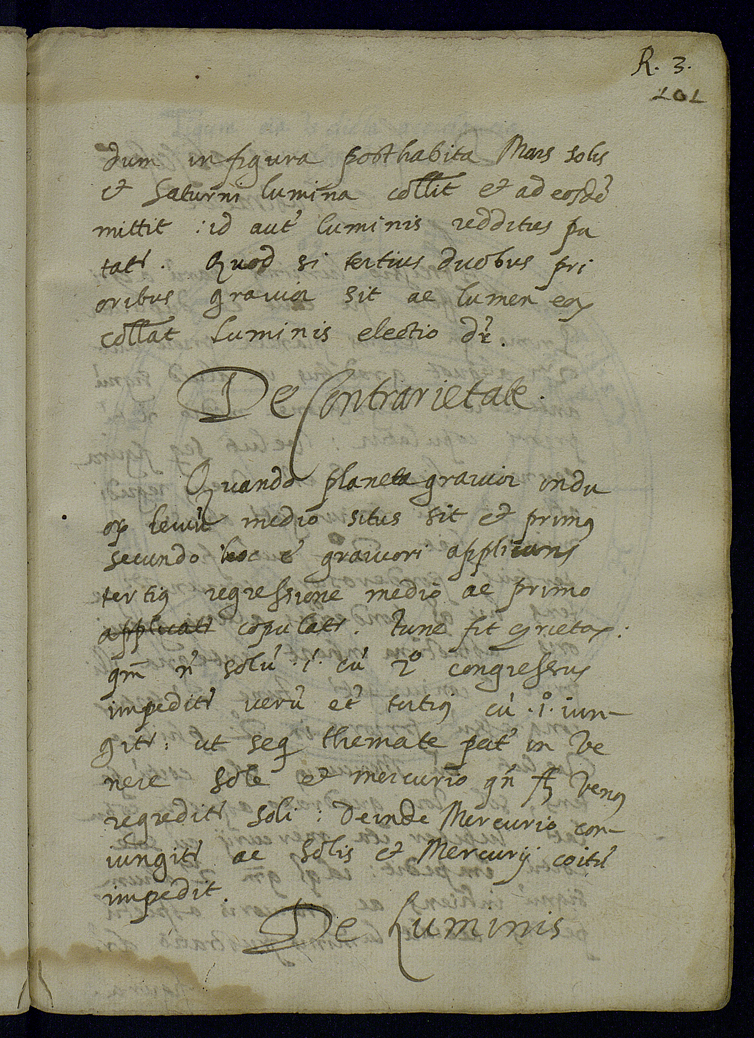 R. 3.
101
dum in figura posthabita Mars solis
et Saturni lumina collit et ad eosdē
mittit : id aut luminis redditus pa
tatr. Quod si tertius duobus pri
oribus gravior sit ac lumen eoꝝ
collat luminis electio dr.
De Contrarietate.
Quando planeta gravior in du
oꝝ leviū medio situs sit et primꝰ
secundo hoc ē graviori
tertiꝰ regressione medio ac primo
applicatr copulatr. Tunc fit
qm̄ n̄ solū i cū 2º congressus
impeditr verū et tertiꝰ cū .1º. iun-
gitr: ut seq themate pat in Ve
nere Sole et mercurio qn̄ Venꝰ
regreditr soli : Deinde Mercurio con-
iungitr ac Solis et Mercurij coitū
impedit.
De Luminis